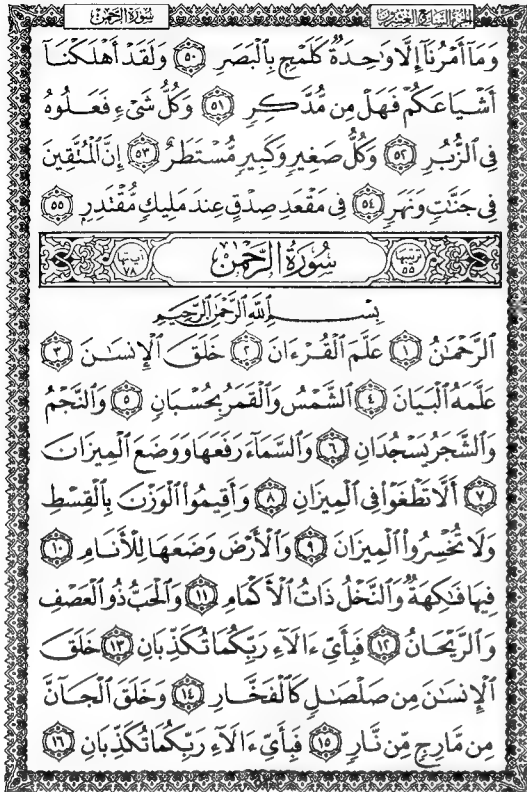 الجزء السابع والعشرون
سُورَةُ الرَّحْمَٰن
وَمَآ أَمْرُنَآ إِلَّا وَٰحِدَةٌ كَلَمْحٍۭ بِٱلْبَصَرِ ٥٠ وَلَقَدْ أَهْلَكْنَآ
أَشْيَاعَكُمْ فَهَلْ مِن مُّدَّكِرٍ ٥١ وَكُلُّ شَىْءٍ فَعَلُوهُ
فِى ٱلزُّبُرِ ٥٢ وَكُلُّ صَغِيرٍ وَكَبِيرٍ مُّسْتَطَرٌ ٥٣ إِنَّ ٱلْمُتَّقِينَ
فِى جَنَّٰتٍ وَنَهَرٍ ٥٤ فِى مَقْعَدِ صِدْقٍ عِندَ مَلِيكٍ مُّقْتَدِرٍۭ ٥٥
ترتيبها ٥٥ سُورَةُ الرَّحْمَٰن آياتها ٧٨
بِسْمِ ٱللَّهِ ٱلرَّحْمَٰنِ ٱلرَّحِيمِ
ٱلرَّحْمَٰنُ ١ عَلَّمَ ٱلْقُرْءَانَ ٢ خَلَقَ ٱلْإِنسَٰنَ ٣
عَلَّمَهُ ٱلْبَيَانَ ٤ ٱلشَّمْسُ وَٱلْقَمَرُ بِحُسْبَانٍ ٥ وَٱلنَّجْمُ
وَٱلشَّجَرُ يَسْجُدَانِ ٦ وَٱلسَّمَآءَ رَفَعَهَا وَوَضَعَ ٱلْمِيزَانَ
٧ أَلَّا تَطْغَوْا۟ فِى ٱلْمِيزَانِ ٨ وَأَقِيمُوا۟ ٱلْوَزْنَ بِٱلْقِسْطِ
وَلَا تُخْسِرُوا۟ ٱلْمِيزَانَ ٩ وَٱلْأَرْضَ وَضَعَهَا لِلْأَنَامِ ١٠
فِيهَا فَٰكِهَةٌ وَٱلنَّخْلُ ذَاتُ ٱلْأَكْمَامِ ١١ وَٱلْحَبُّ ذُو ٱلْعَصْفِ
وَٱلرَّيْحَانُ ١٢ فَبِأَىِّ ءَالَآءِ رَبِّكُمَا تُكَذِّبَانِ ١٣ خَلَقَ
ٱلْإِنسَٰنَ مِن صَلْصَٰلٍ كَٱلْفَخَّارِ ١٤ وَخَلَقَ ٱلْجَآنَّ
مِن مَّارِجٍ مِّن نَّارٍ ١٥ فَبِأَىِّ ءَالَآءِ رَبِّكُمَا تُكَذِّبَانِ ١٦